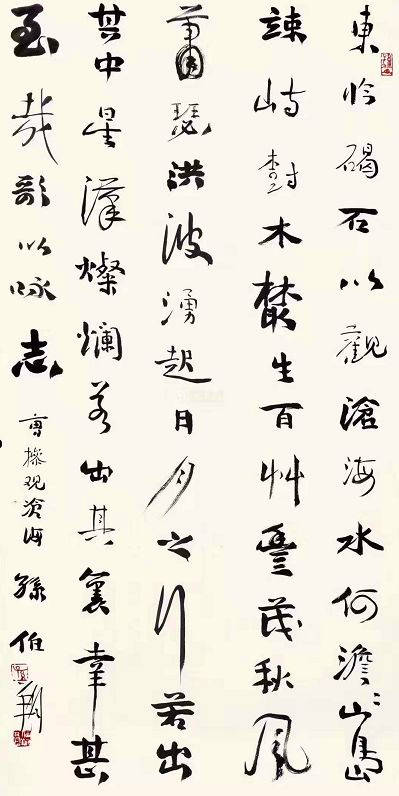 東臨碣石以觀滄海水何澹ミ山島
竦峙樹木叢生百艸豐茂秋風
蕭瑟洪波湧起日月之行若出
其中星漢燦爛若出其裏幸甚
至哉歌以咏志 曹操观滄海 孫伯翔